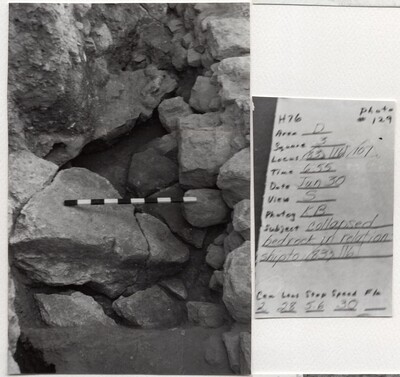 H76 photo
# 129
Area D
Square 3
Locus
Time 6:55
Date Jun 30
View S
Photog KB
Subject collapsed
bedrock in relation
ship to
Cam Lens Stop Speed Flm
2 28 5.6 30